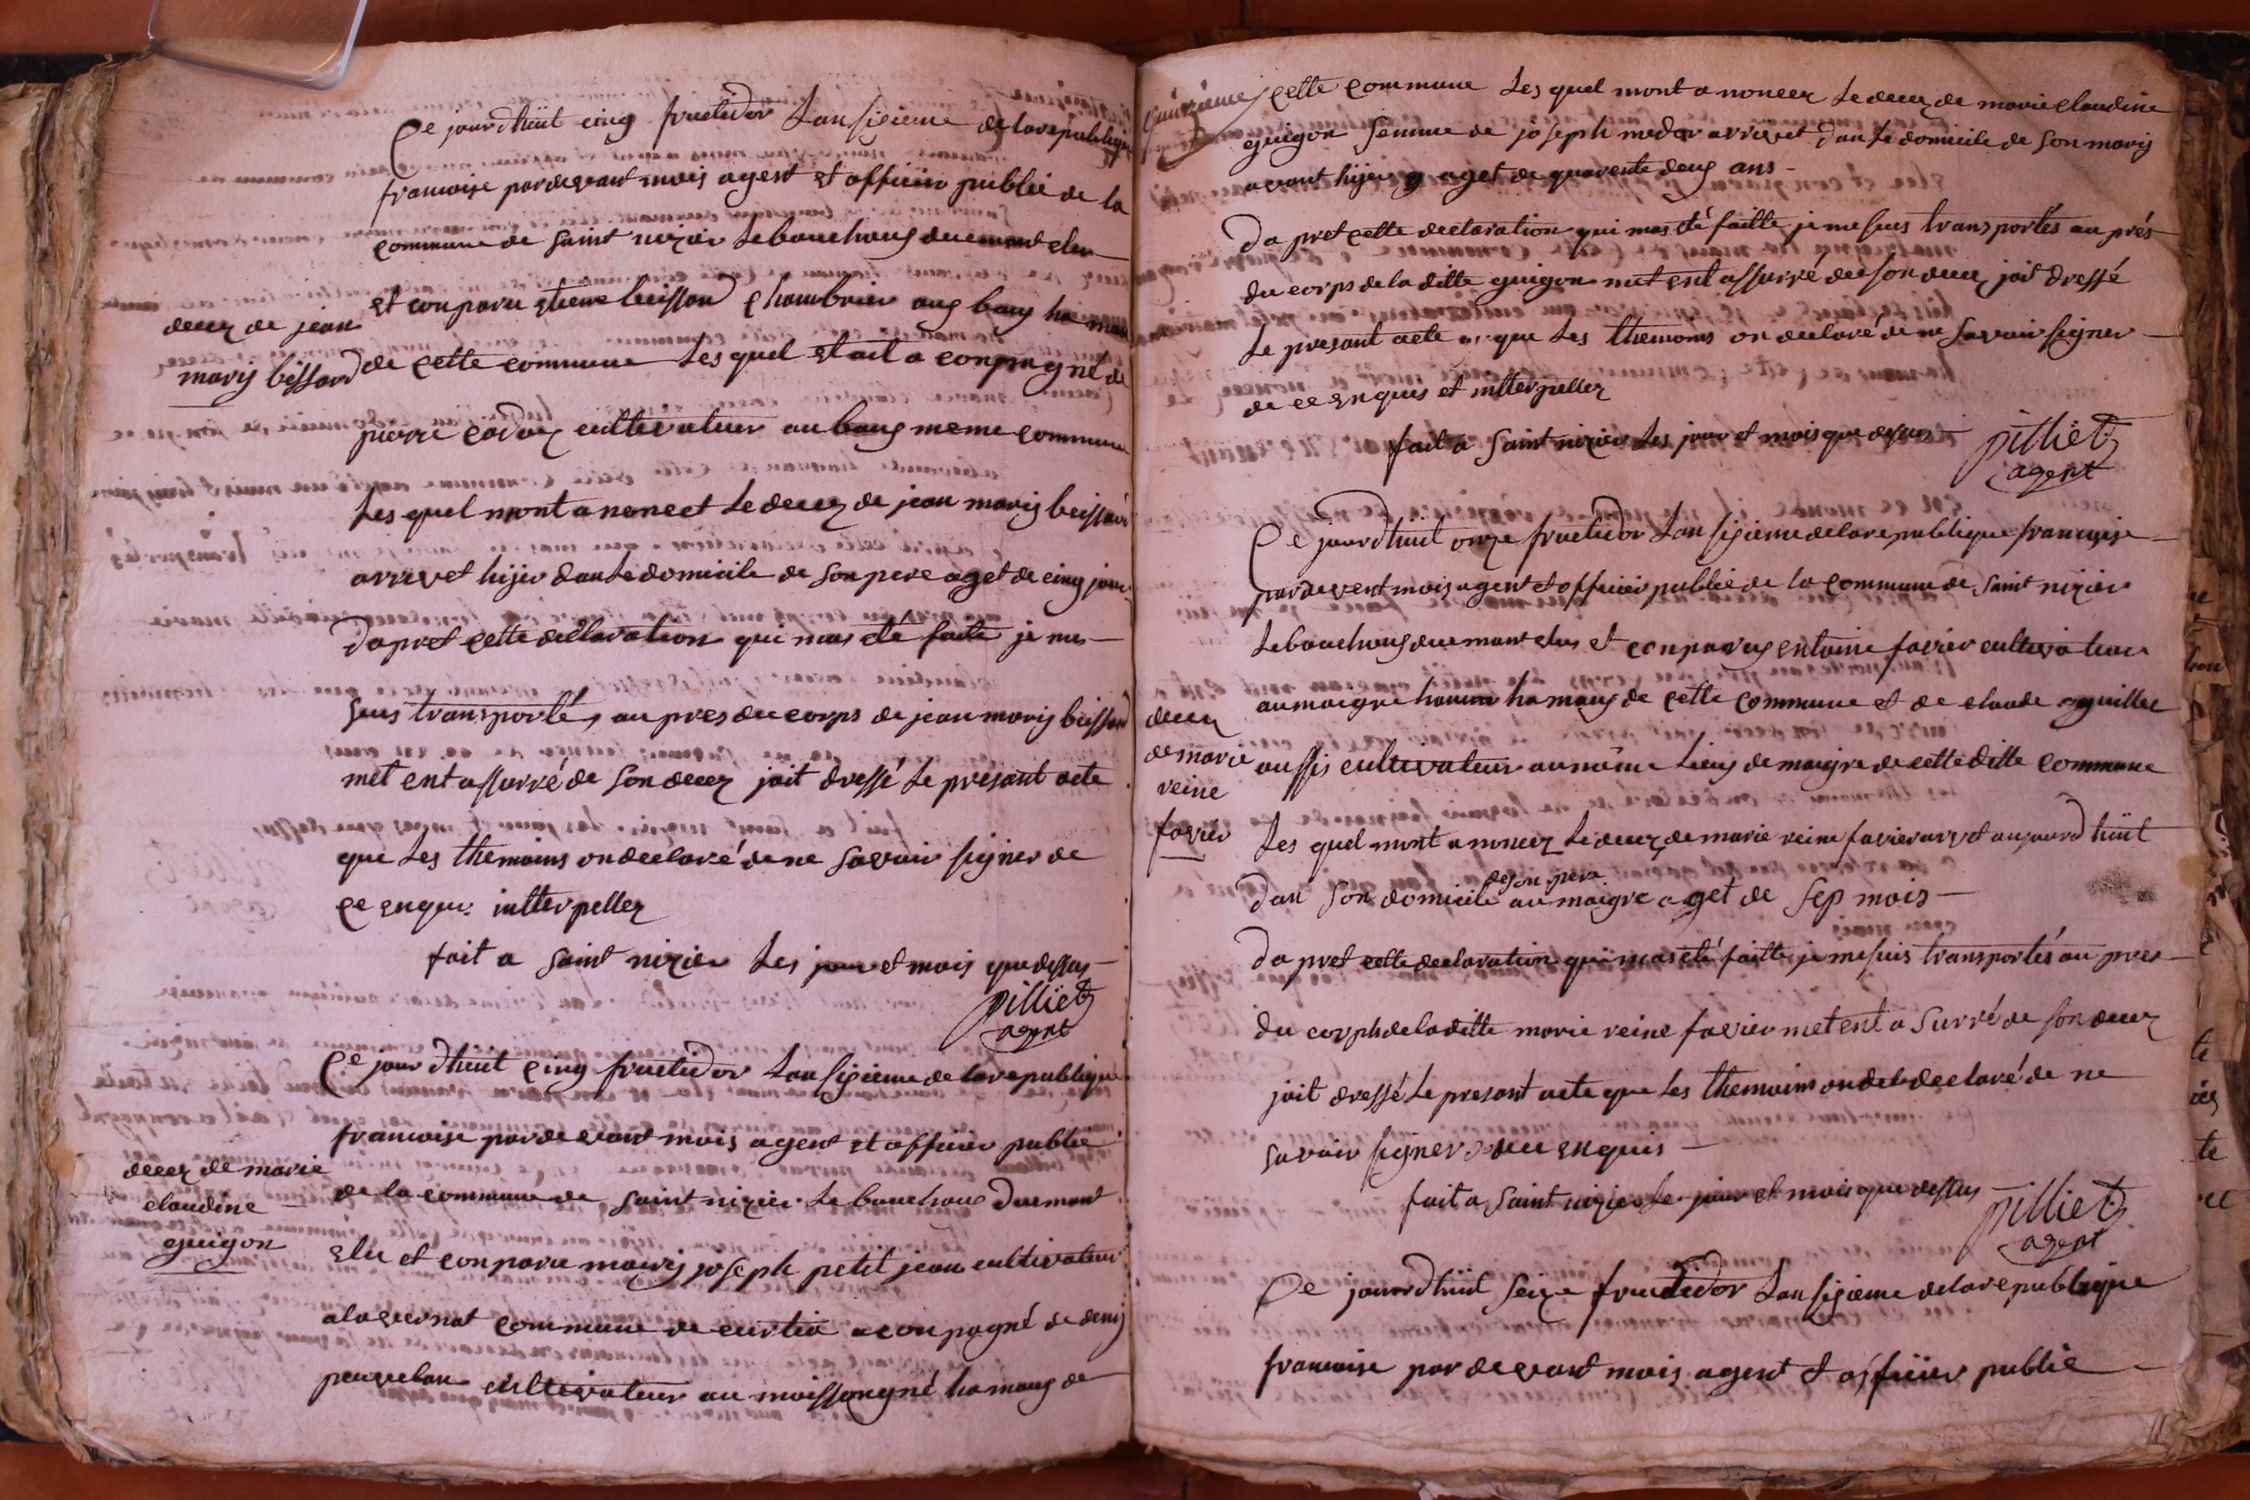 Ce jourdhuit cinq fructidor Lan sixieme de larepublique
francoise pardevant mois agent et officier public de la
commune de saint nizier Lebouchoug duemant elu
decez de jean
marij bissard
et conparu etiene buissard chambrier aug bang hamau
de cette commune Les quel etait aconpagné de
pierre cadoz cultivateur au bang meme commune
Les quel mont anoncet Le decez de jean marij buissard
arrivet hijer dan Le domicile de son pere aget de cinq jour
Dapret cette declaration qui mas eté faite je me
suis transporté, au pres du corps de jean marij buissard
met ent assurré de son decez jait dressé Le présant acte
que Les themoins on declaré de ne savoir signer de
ce enquis intterpellez
fait a saint nizier Les jour et mois que dessus
pilliet
agent
Ce jourdhuit cinq fructidor Lan sixieme de larepublique
francoise pardevant mois agent et officier public
decez de marie
claudine
guigon
de la commune de saint nizier Le bouchoug duemant
elu et conparu marij joseph petit jean cultivateur
alavernat commune de curtia aconpagné de denij
peuvelan cultivateur au moissongné hamaug de
cette commune Les quel mont anoncez Le decez de marie claudine
guigon femme de joseph medor arrivet dan Le domicile de son marij
avant hijer aget de quarente deug ans
Dapret cette declaration qui mas eté faitte je me suis transportés au prés
du corps de la ditte guigon met ent assurré de son decez jait dressé
Le presant acte que Les themoins on declaré de ne savoir signer
de ce enquis et intterpellez
fait a saint nizier Les jour et mois que dessus
pilliet
agent
Ce jourdhuit onze fructidor Lan sixieme de larepublique francoise
pardevent mois agent et officier public de la commune de saint nizier
Lebouchoug duemant elus et conparus entoine favier cultivateur
decez
de marie
reine
favier
au maigre hamaug de cette commune et de claude eguillet
aussis cultivateur au même Lieug de maigre de cette ditte commune
Les quel mont anoncez Le decez de marie reine favier arrivet aujourdhuit
dan son domicile de son pere au maigre aget de sep mois
Dapret cette declaration qui mas eté faitte je me suis transportés au pres
du corph de laditte marie reine favier met ent asurré de son decez
jait dressé Le presant acte que Les themoins on declaré de ne
savoir signer de ce enquis
fait a saint nizier Le jour et mois que dessus
pilliet
agent
Ce jourdhuit seize fructidor Lan sixieme de larepublique
francoise par devant mois agent et officier public